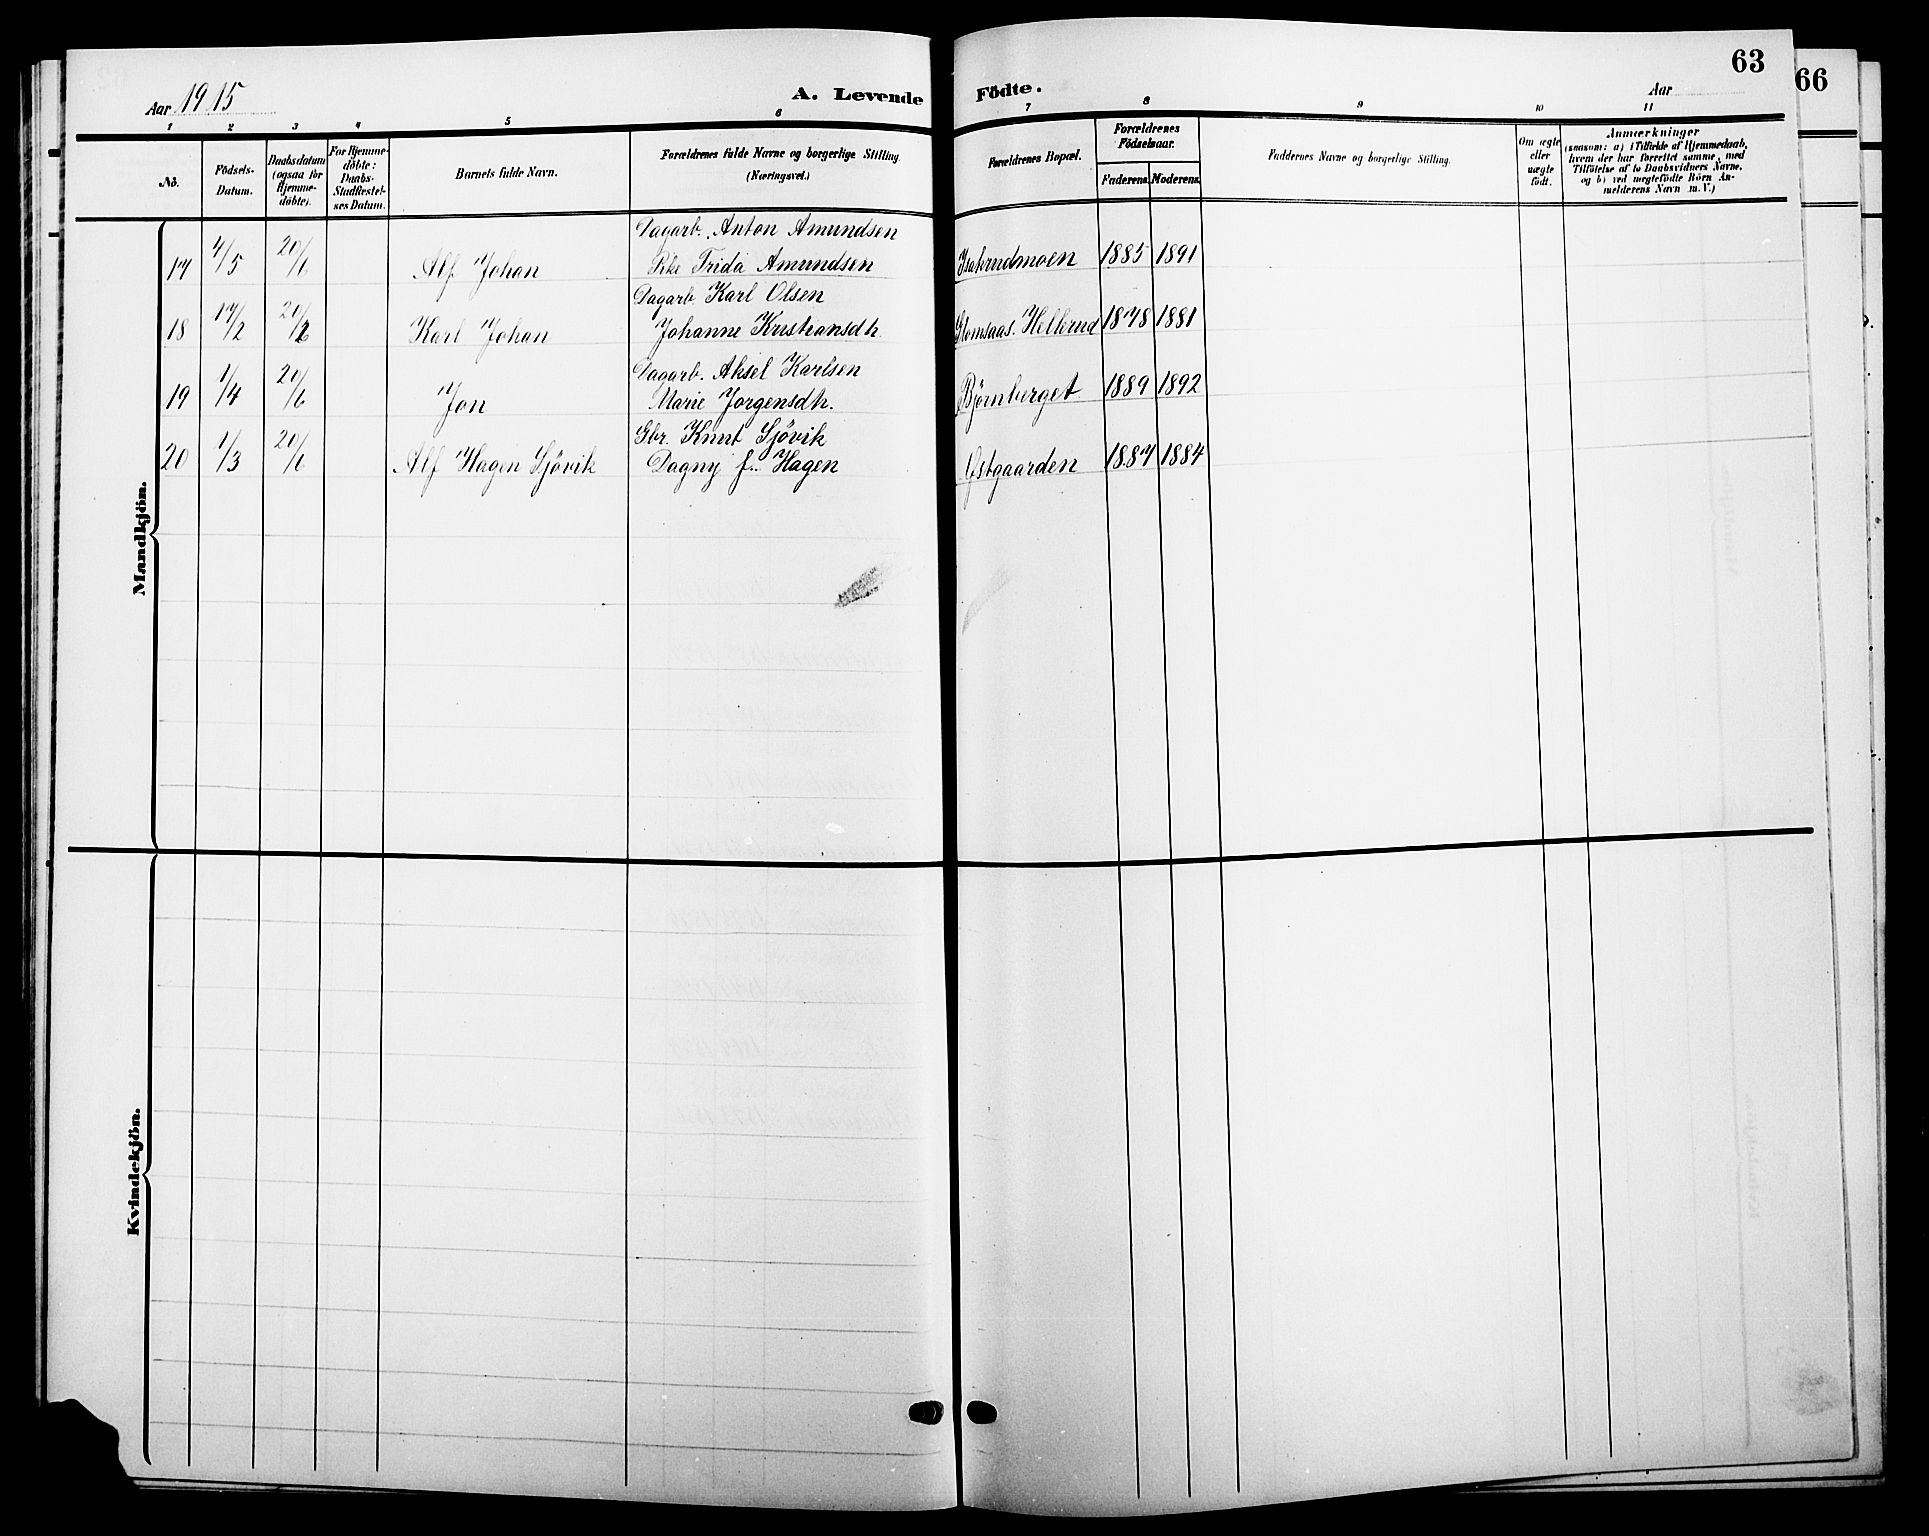 Aar 1915
A. Levende Födte.
Aar
63
66
1 2 3 4 5 6 7 8 9 10 11
No.
Födsels-
Datum.
Daabsdatum
(ogsaa for
Hjemme-
döbte).
For Hjemme-
döbte:
Daabs-
Stadfæstel-
ses Datum.
Barnets fulde Navn.
Forældrenes fulde Navne og borgerlige Stilling.
(Næringsvei.)
Forældrenes Bopæl.
Forældrenes
Födselsaar.
Faderens.
Moderens.
Faddernes Navne og borgerlige Stilling.
Om ægte
eller
uægte
født.
Anmærkninger
(saasom: a) i Tilfælde af Hjemmedaab,
hvem der har forrettet samme, med
Tilföielse af to Daabsvidners Navne,
og b) ved uægtefödte Börn An-
melderens Navn m. V.)
Mandkjön.
Dagarb. Anton Amundsen
17 4/5 20/6 Alf Johan Pke Frida Amundsen Isakrudmoen 1885 1891
Dagarb. Karl Olsen
18 17/2 20/6 Karl Johan Johanne Kristiansdh. Glomsaas. Hellerud 1878 1881
Dagarb. Aksel Karlsen
19 1/4 20/6 Jon Marie Jorgensdh. Bjørnberget 1889 1892
Gbr. Knut Sjövik
20 1/3 20/6 Alf Hagen Sjövik Dagny f. Hagen Østgaarden 1887 1884
Kvindekjön.